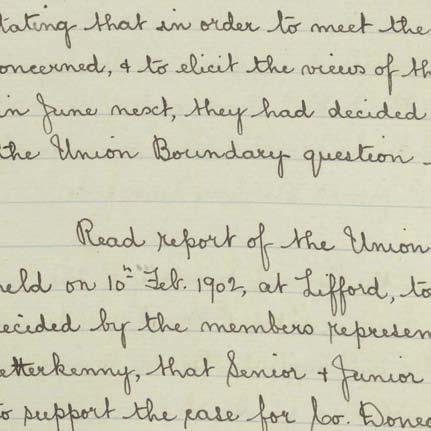 tating that in order to meet the
oncerned, & to elicit the views of th
in June next, they had decided
the Union Boundary question -
Read report of the Union
held on 10th Feb. 1902, at Lifford, to
ecided by the members represen
etterkenny, that Senior & Junior
to support the case for Co. Doneg